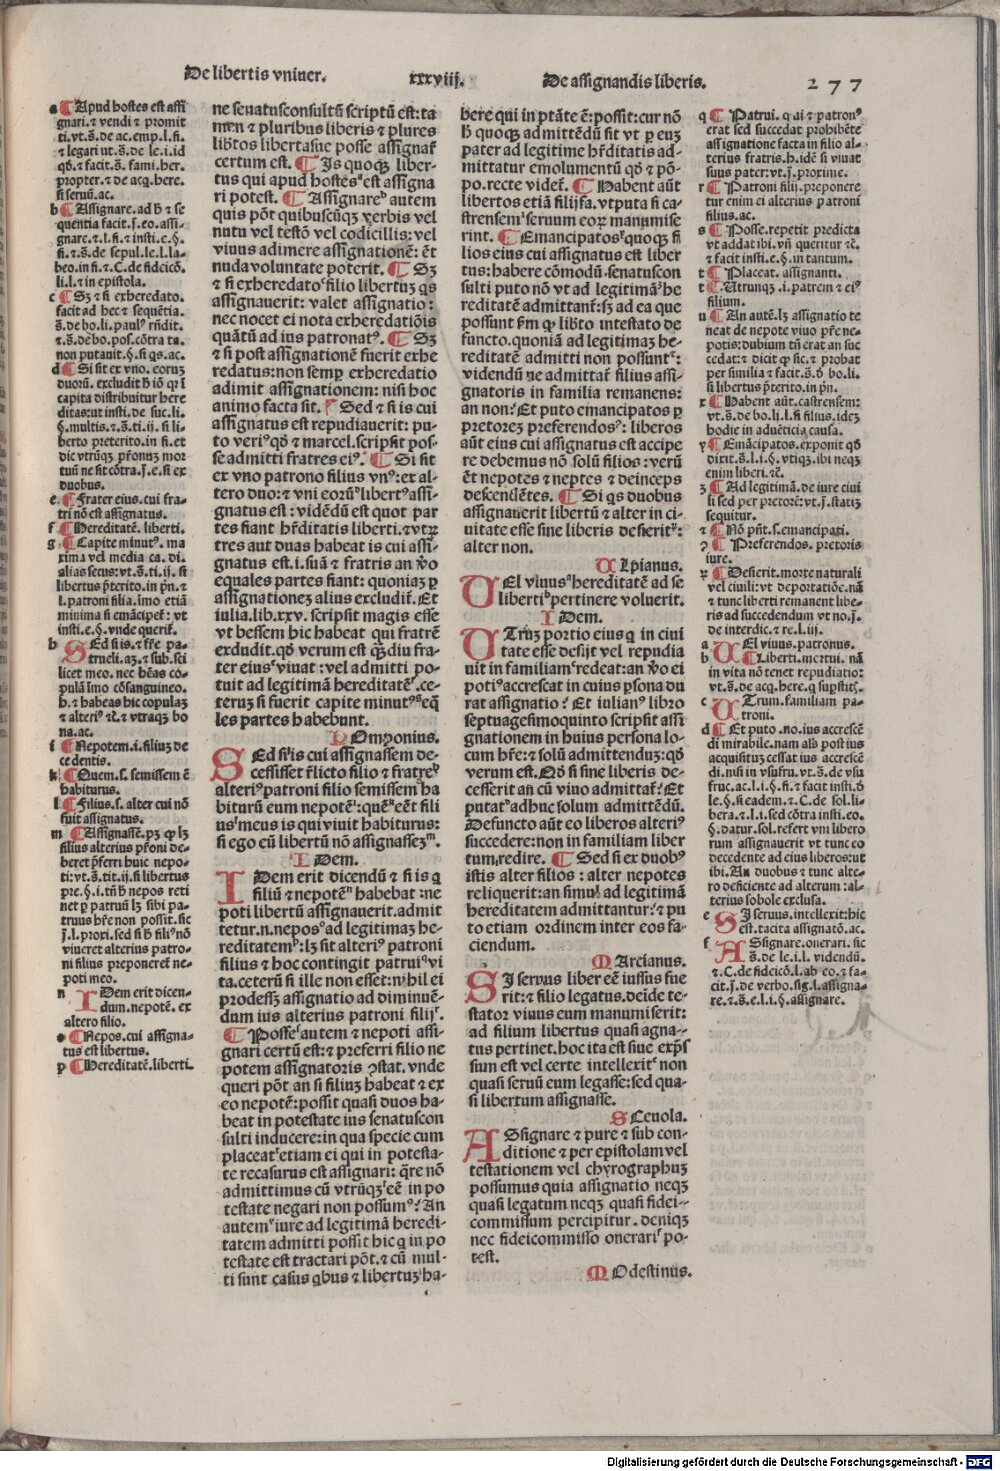 De libertis vniuer.
xxxviij.
De assignandis liberis.
277
a ¶ Apud hostes est assi
gnari. ⁊ vendi ⁊ promit
ti. vt. s̄. de ac. emp. l. fi.
⁊ legari ut. s̄. de le. i. id
qđ. ⁊ facit. s̄. fami. her.
propter. ⁊ de acq. here.
si seruū. ac.
b ¶ Assignare. ad h̄ ⁊ se
quentia facit. j. eo. assi-
gnare. ⁊ l. fi. ⁊ insti. e. §.
fi. ⁊ s̄. de sepul. le. l. la-
beo. in fi. ⁊ C. de fideicō.
li. l. ⁊ in epistola.
c ¶ Sʒ ⁊ si exheredato.
facit ad hec ⁊ sequētia.
s̄. de bo. li. paulꝰ rn̄dit.
⁊ s̄. de bo. pos. cōtra ta.
non putauit. §. si qs. ac.
d ¶ Si sit ex vno. eorum
duorū. excludit h̄ iō qr i
capita distribuitur here
ditas: ut insti. de suc. li.
§. multis. ⁊ s̄. ti. ij. si li-
berto preterito. in fi. et
dic vtrūqʒ p̄ronū mor
tuū ne sit cōtra. j. e. si ex
duobus.
e ¶ Frater eius. cui fra-
tri nō est assignatus.
f ¶ Hereditatē. liberti.
g ¶ Capite minutꝰ. ma
xima vel media ca. di.
alias secus: vt. s̄. ti. ij. si
libertus p̄terito. in pn̄. ⁊
l. patroni filia. imo etiā
minima si emācipet: vt
insti. e. §. vnde querit.
h Sed si is. ⁊ fr̄e pa-
trueli. aʒ. ⁊ sub. sci
licet meo. nec bēas co-
pulā imo cōsanguineo.
h. ⁊ habeas hic copulaʒ
⁊ alteriꝰ ⁊c̄. ⁊ vtraqʒ bo
na. ac.
i ¶ Nepotem. i. filium de
cedentis.
k ¶ Quem. s. semissem ē
habiturus.
l ¶ Filius. s. alter cui nō
fuit assignatus.
m ¶ Assignassē. pʒ qꝫ lʒ
filius alterius p̄roni de-
beret p̄ferri huic nepo-
ti: vt. s̄. tit. ij. si libertus
pre. §. i. tn̄ h̄ nepos reti
net p patruū lʒ sibi pa-
truus hr̄e non possit. sic
j. l. proxi. sed si h̄ filiꝰ nō
viueret alterius patro-
ni filius preponeret ne-
poti meo.
n Idem erit dicen-
dum. nepotē. ex
altero filio.
o ¶ Nepos. cui assigna-
tus est libertus.
p ¶ Hereditatē. liberti.
ne senatusconsultꝰ scriptū est: ta
men ⁊ pluribus liberis ⁊ plures
lib̄tos libertasue posse assignar̄
certum est. ¶ Is quoqʒ liber-
tus qui apud hostes est assigna
ri potest. ¶ Assignare autem
quis pōt quibuscūqʒ verbis vel
nutu vel testō vel codicillis: vel
viuus adimere assignationē: ēt
nuda voluntate poterit. ¶ Sʒ
⁊ si exheredato filio libertuʒ qs
assignauerit: valet assignatio:
nec nocet ei nota exheredatiōis
quātū ad ius patronatꝰ. ¶ Sʒ
⁊ si post assignationē fuerit exhe
redatus: non semp exheredatio
adimit assignationem: nisi hoc
animo facta sit. ¶ Sed ⁊ si is cui
assignatus est repudiauerit: pu-
to veriꝰ qđ ⁊ marcel. scripsit pos-
se admitti fratres eiꝰ. ¶ Si sit
ex vno patrono filius vnꝰ: ex al-
tero duo: ⁊ vni eorū libertꝰ assi-
gnatus est: vidēdū est quot par
tes fiant hr̄ditatis liberti. ⁊ vtrʒ
tres aut duas habeat is cui assi-
gnatus est. i. suā ⁊ fratris an vo
equales partes fiant: quoniaʒ p
assignationeʒ alius excludit. Et
iulia. lib. xxv. scripsit magis esse
vt bessem hic habeat qui fratrē
excludit. qđ verum est qʒdiu fra-
ter eius viuat: vel admitti po-
tuit ad legitimā hereditatē. ce-
teruʒ si fuerit capite minutꝰ eq̄
les partes habebunt.
Pomponius.
Sed si is cui assignassem de-
cessisset relicto filio ⁊ fratre
alteriꝰ patroni filio semissem ha
biturū eum nepotē: quē eēt fili
us meus is qui viuit habiturus:
si ego eū libertū nō assignassem.
Idem.
Idem erit dicendū ⁊ si is q
filiū ⁊ nepotē habebat: ne
poti libertū assignauerit. admit
tetur. n. nepos ad legitimaʒ he-
reditatem: lʒ sit alteriꝰ patroni
filius ⁊ hoc contingit patrui vi
ta. ceterū si ille non esset: nihil ei
prodesse assignatio ad diminuē-
dum ius alterius patroni filij.
¶ Posse autem ⁊ nepoti assi-
gnari certū est: ⁊ preferri filio ne
potem assignatoris ꝯstat. vnde
queri pōt an si filium habeat ⁊ ex
eo nepotē: possit quasi duos ha-
beat in potestate ius senatuscon
sulti inducere: in qua specie cum
placeat etiam ei qui in potesta-
te recasurus est assignari: qre nō
admittimus cū vtrūqʒ eē in po
testate negari non possumꝰ? An
autem iure ad legitimā heredi-
tatem admitti possit hic q in po
testate est tractari pōt. ⁊ cū mul-
ti sunt casus qbus ⁊ libertuʒ ha-
bere qui in ptāte ē: possit: cur nō
h̄ quoqʒ admittēdū sit vt p eum
pater ad legitime hr̄ditatis ad-
mittatur emolumentū qđ ⁊ pō-
po. recte videt. ¶ Habent aūt
libertos etiā filijfa. vtputa si ca-
strensem seruum eorʒ manumise
rint. ¶ Emancipatos quoqʒ fi
lios eius cui assignatus est liber
tus: habere cōmodū senatuscon
sulti puto nō vt ad legitimā he
reditatē admittant: sʒ ad ea que
possunt s̄m qʒ lib̄to intestato de
functo. quoniā ad legitimaʒ he-
reditatē admitti non possunt:
videndū ne admittat filius assi-
gnatoris in familia remanens:
an non? Et puto emancipatos p
pretorem preferendos: liberos
aūt eius cui assignatus est accipe
re debemus nō solū filios: verū
ēt nepotes ⁊ neptes ⁊ deinceps
descendētes. ¶ Si qs duobus
assignauerit libertū ⁊ alter in ci-
uitate esse sine liberis desierit:
alter non.
Ulpianus.
Uel viuus hereditatē ad se
liberti pertinere voluerit.
Idem.
Utrum portio eius q in ciui
tate esse desijt vel repudia
uit in familiam redeat: an vo ei
potiꝰ accrescat in cuius psona du
rat assignatio? Et iulianꝰ libro
septuagesimoquinto scripsit assi
gnationem in huius persona lo-
cum hr̄e: ⁊ solū admittenduʒ: qđ
verum est. Qđ si sine liberis de-
cesserit an cū viuo admittat? Et
putat adhuc solum admittēdū.
Defuncto aūt eo liberos alteriꝰ
succedere: non in familiam liber
tum redire. ¶ Sed si ex duobꝰ
istis alter filios: alter nepotes
reliquerit: an simul ad legitimā
hereditatem admittantur? ⁊ pu
to etiam ordinem inter eos fa-
ciendum.
Marcianus.
Si seruus liber eē iussus fue
rit: ⁊ filio legatus. deīde te-
stator viuus eum manumiserit:
ad filium libertus quasi agna-
tus pertinet. hoc ita est siue exp̄s
sum est vel certe intellexit non
quasi seruū eum legasse: sed qua-
si libertum assignasse.
Sceuola.
Assignare ⁊ pure ⁊ sub con-
ditione ⁊ per epistolam vel
testationem vel chyrographuʒ
possumus quia assignatio neqʒ
quasi legatum neqʒ quasi fidei-
commissum percipitur. deniqʒ
nec fideicommisso onerari po-
test.
Modestinus.
q ¶ Patrui. q ai ⁊ patronꝰ
erat sed succedat prohibēte
assignatione facta in filio al-
terius fratris. h. idē si viuat
suus pater: vt. j. proxime.
r ¶ Patroni filij. preponere
tur enim ei alterius patroni
filius. ac.
s ¶ Posse. repetit predicta
vt addat ibi. vn̄ queritur ⁊c̄.
⁊ facit insti. e. §. in tantum.
t ¶ Placeat. assignanti.
t ¶ Utrunqʒ. i. patrem ⁊ eiꝰ
filium.
u ¶ An autē. lʒ assignatio te
neat de nepote viuo pr̄e ne-
potis: dubium tn̄ erat an suc
cedat: ⁊ dicit qʒ sic. ⁊ probat
per similia ⁊ facit. s̄. ð bo. li.
si libertus p̄terito. in pn̄.
x ¶ Habent aūt. castrensem:
vt. s̄. de bo. li. l. si filius. ideʒ
hodie in aduēticia causa.
y ¶ Emācipatos. exponit qđ
dixit. s̄. l. i. §. vtiqʒ. ibi neqʒ
enim liberi. ⁊c̄.
ʒ ¶ Ad legitimā. de iure ciui
li sed per pretorē: vt. j. statiʒ
sequitur.
⁊ ¶ Nō pn̄t. s. emancipati.
ꝯ ¶ Preferendos. pretoris
iure.
ꝝ ¶ Desierit. morte naturali
vel ciuili: vt deportatiōe. nā
⁊ tunc liberti remanent libe-
ris ad succedendum vt no. j.
de interdic. ⁊ re. l. iij.
a Uel viuus. patronus.
b ¶ Liberti. mortui. nā
in vita nō tenet repudiatio:
vt. s̄. de acq. here. q supstitꝭ.
c Utrum. familiam pa-
troni.
d ¶ Et puto. no. ius accrescē
di mirabile. nam alꝰ post ius
acquisituʒ cessat ius accrescē
di. nisi in vsufru. vt. s̄. de vsu
fruc. ac. l. i. §. fi. ⁊ facit insti. ð
le. §. si eadem. ⁊. C. de sol. li-
bera. ⁊. l. i. sed cōtra insti. eo.
§. datur. sol. refert vni libero
rum assignauerit vt tunc eo
decedente ad eius liberos: ut
ibi. An duobus ⁊ tunc alte-
ro deficiente ad alterum: al-
terius sobole exclusa.
e Si seruus. intellexit: hic
est. tacita assignatō. ac.
f Assignare. onerari. sic
s̄. de le. i. l. videndū.
⁊. C. de fideicō. l. ab eo. ⁊ fa-
cit. j. de verbo. sig. l. assigna-
re. ⁊ s̄. e. l. i. §. assignare.
Digitalisierung gefördert durch die Deutsche Forschungsgemeinschaft - DFG